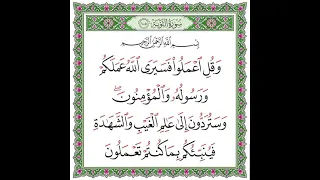 سُورَةُ التَّوْبَةِ
بِسْمِ اللَّهِ الرَّحْمَٰنِ الرَّحِيمِ
وَقُلِ ٱعْمَلُوا۟ فَسَيَرَى ٱللَّهُ عَمَلَكُمْ
وَرَسُولُهُۥ وَٱلْمُؤْمِنُونَ ۖ
وَسَتُرَدُّونَ إِلَىٰ عَٰلِمِ ٱلْغَيْبِ وَٱلشَّهَٰدَةِ
فَيُنَبِّئُكُم بِمَا كُنتُمْ تَعْمَلُونَ